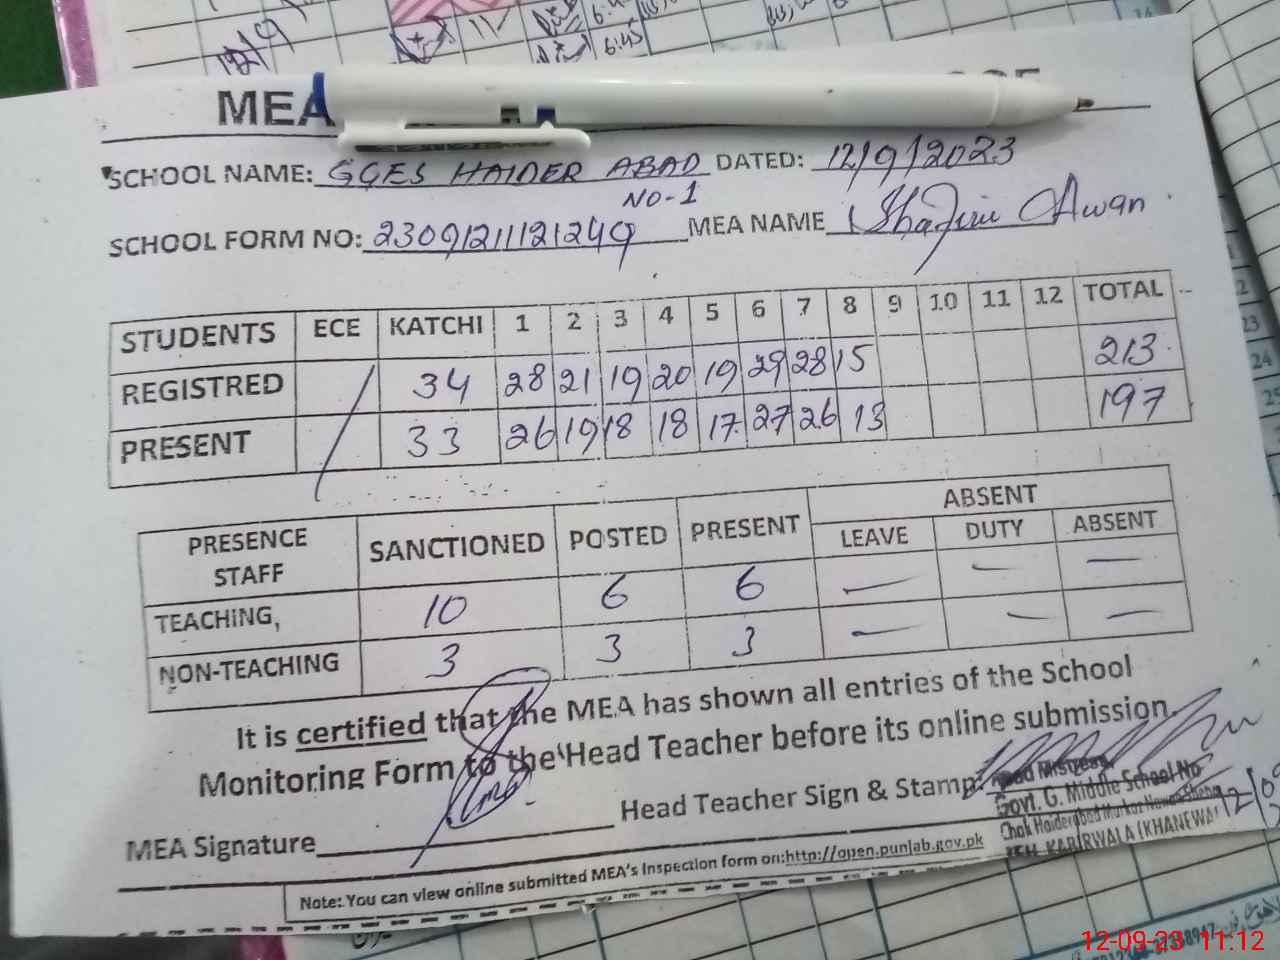 MEA
SCHOOL NAME: GGES HAIDER ABAD DATED: 12/9/2023
NO-1
SCHOOL FORM NO: 23091211121249 MEA NAME Awan
STUDENTS ECE KATCHI 1 2 3 4 5 6 7 8 9 10 11 12 TOTAL
REGISTRED / 34 28 21 19 20 19 29 28 15 213
PRESENT 33 26 19 18 18 17 27 26 13 197
PRESENCE STAFF SANCTIONED POSTED PRESENT ABSENT
LEAVE DUTY ABSENT
TEACHING, 10 6 6 — — —
NON-TEACHING 3 3 3 — — —
It is certified that the MEA has shown all entries of the School
Monitoring Form to the Head Teacher before its online submission.
Head Teacher Sign & Stamp:
Govt. G. Middle School No
Chak Haiderabad
KABIRWALA (KHANEWAL
MEA Signature
Note: You can view online submitted MEA's Inspection form on:http://open.punjab.gov.pk
12-09-23 11:12